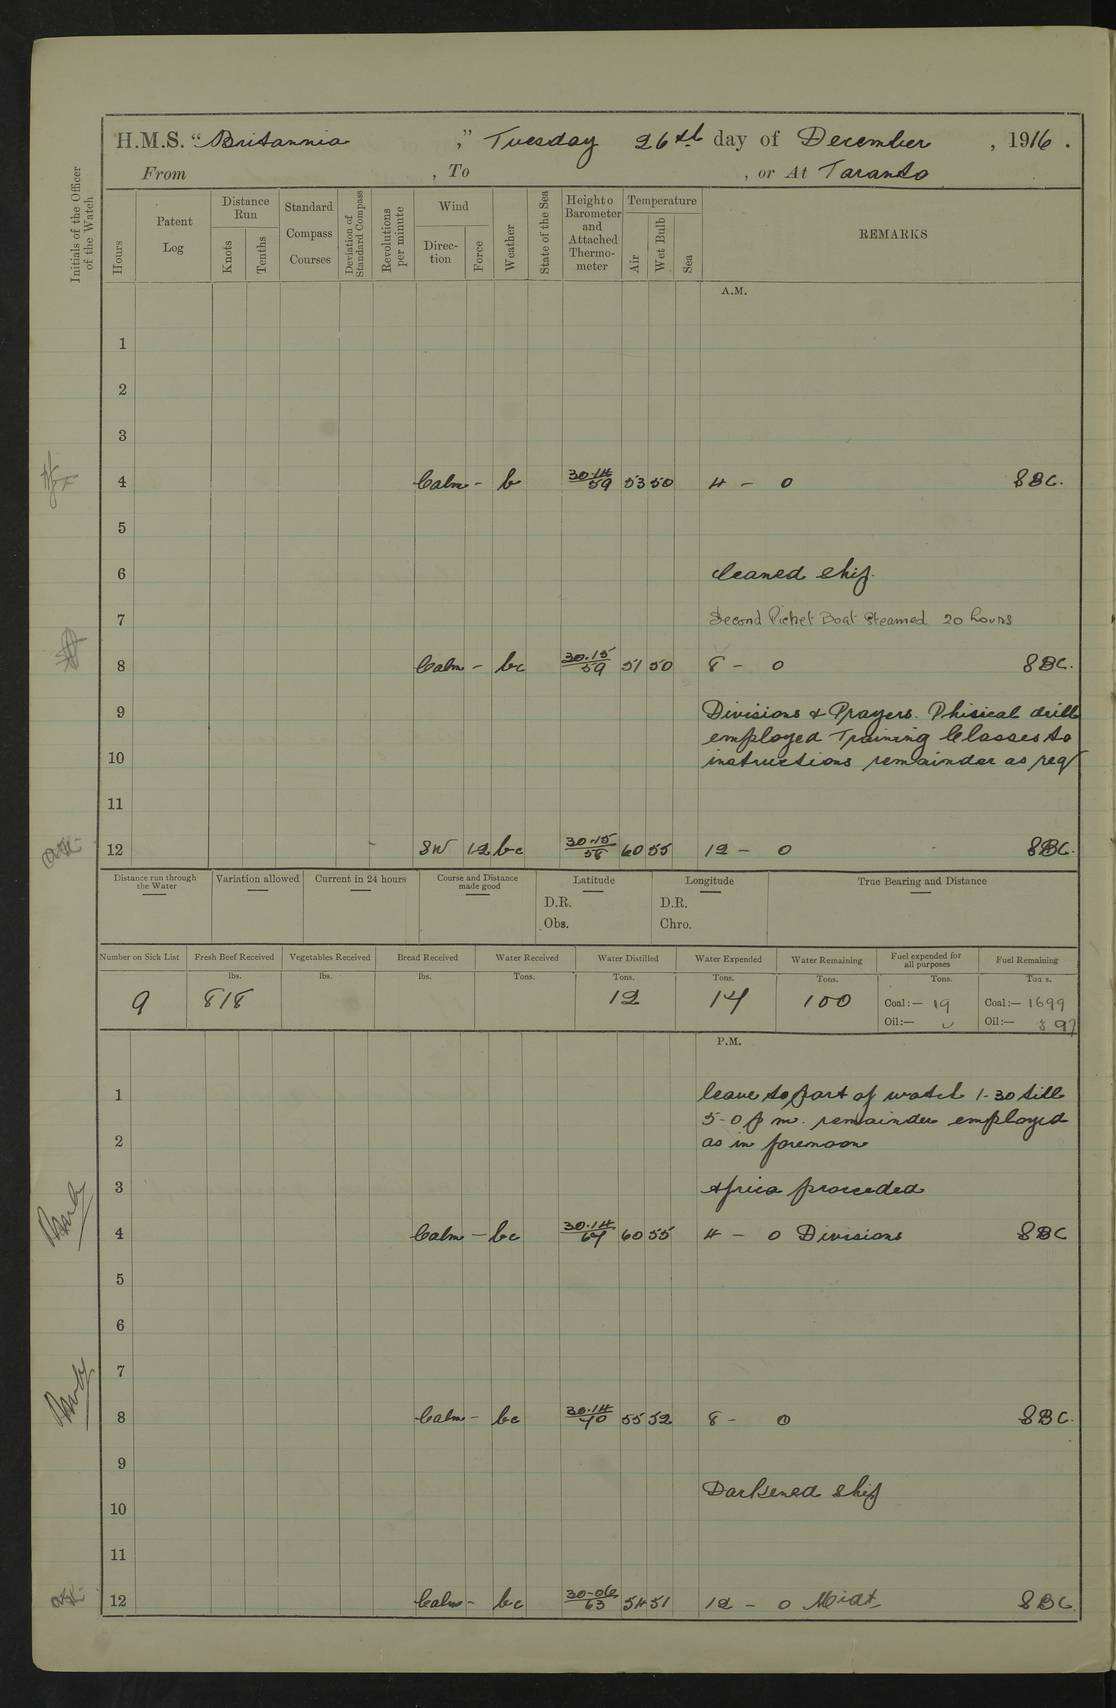 H.M.S. "Britannia ," Tuesday 26th day of December , 1916 .
From , To , or At Taranto
Initials of the Officer of the Watch
Hours
Patent Log
Distance Run
Knots
Tenths
Standard Compass Courses
Deviation of Standard Compass
Revolutions per minute
Wind
Direc-tion
Force
Weather
State of the Sea
Height of Barometer and Attached Thermo-meter
Temperature
Air
Wet Bulb
Sea
REMARKS
A.M.
1
2
3
4 Calm - b 30.14 59 53 50 4 - 0 SBC.
5
6 Cleaned ship.
7 Second Picket Boat Steamed 20 hours
8 Calm - bc 30.15 59 51 50 8 - 0 SBC.
9 Divisions & Prayers. Phisical drill
employed Training Classes to
10 instructions remainder as req
11
12 SW 1.2 bc 30.15 58 60 55 12 - 0 SBC.
Distance run through the Water
Variation allowed
Current in 24 hours
Course and Distance made good
Latitude
D.R.
Obs.
Longitude
D.R.
Chro.
True Bearing and Distance
Number on Sick List Fresh Beef Received Vegetables Received Bread Received Water Received Water Distilled Water Expended Water Remaining Fuel expended for all purposes Fuel Remaining
lbs. lbs. lbs. Tons. Tons. Tons. Tons. Tons. Tons.
9 818 12 14 100 Coal:— 19 Coal:— 1699
Oil:— Oil:— 97
P.M.
1 leave to part of watch 1-30 till
5-0 p m. remainder employed
2 as in forenoon
3 Africa proceeded
4 Calm - bc 30.14 64 60 55 4 - 0 Divisions SBC
5
6
7
8 Calm - bc 30.14 70 55 52 8 - 0 SBC.
9
Darkened ship
10
11
12 Calm - bc 30-06 63 54 51 12 - 0 Midt SBC